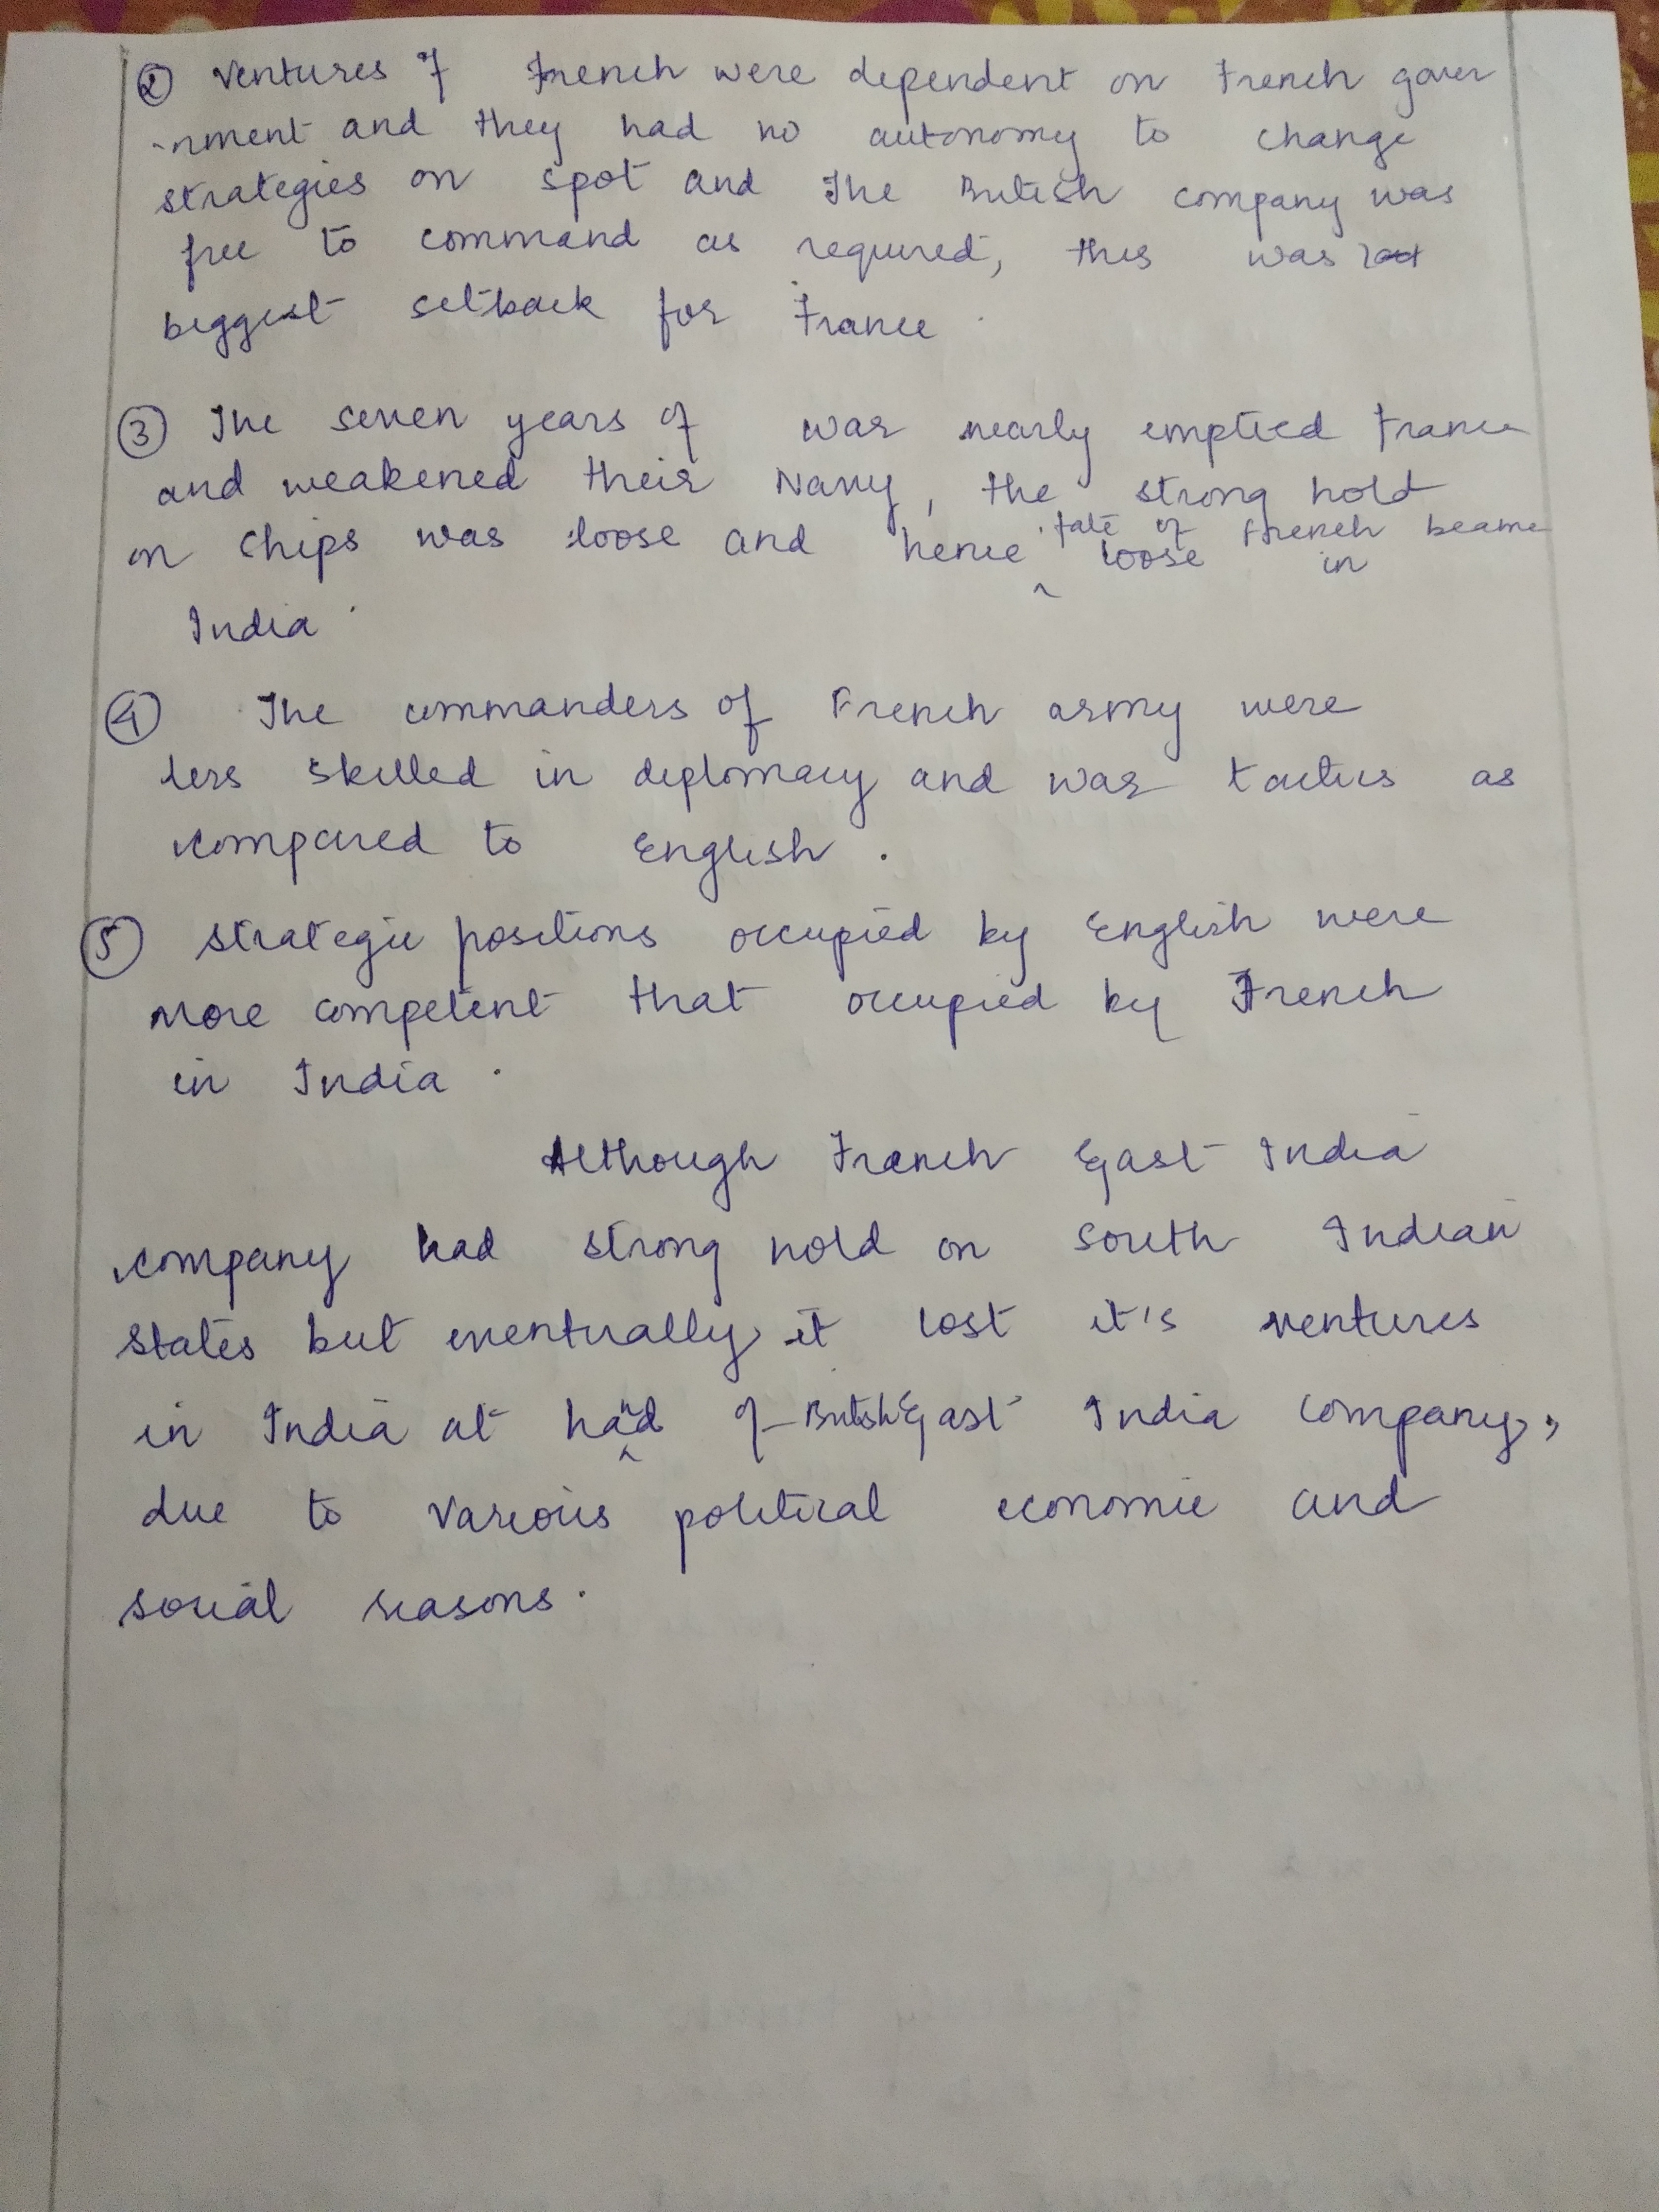 ② Ventures of French were dependent on French gover
-nment and they had no autonomy to change
strategies on spot and the British company was
free to command as required, this was
biggest setback for France.
③ The seven years of war nearly emptied France
and weakened their Navy, the strong hold
on Ships was loose and hence fate of French became
loose in
India.
④ The commanders of French army were
less skilled in diplomacy and war tactics as
compared to English.
⑤ strategic positions occupied by English were
more competent that occupied by French
in India.
Although French East India
company had strong hold on South Indian
states but eventually it lost it's ventures
in India at hand of British East India Company,
due to various political economic and
social reasons.